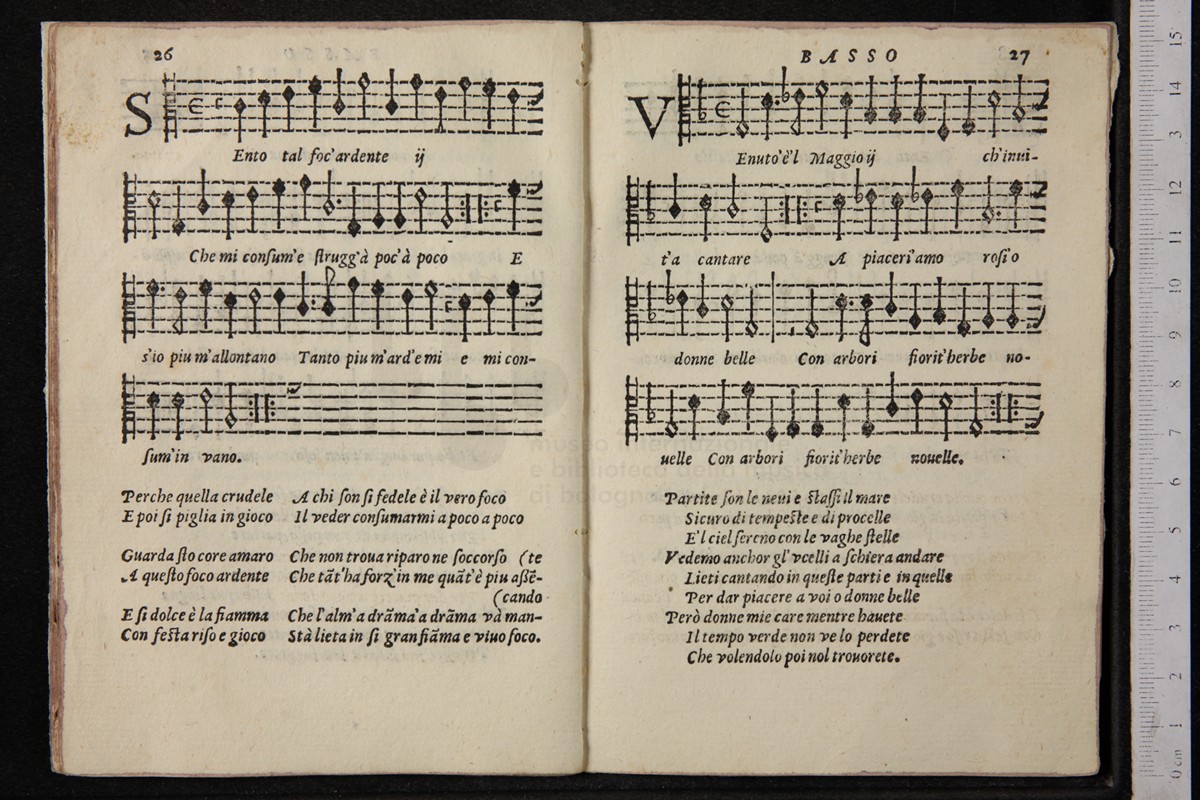 26
S
Ento tal foc'ardente ij
Che mi conſum'e ſtrugg'à poc'à poco E
s'io piu m'allontano Tanto piu m'ard'e mi e mi con-
ſum'in vano.
Perche quella crudele A chi ſon ſi fedele è il vero foco
E poi ſi piglia in gioco Il veder conſumarmi a poco a poco
Guarda ſto core amaro Che non troua riparo ne ſoccorſo (te
A queſto foco ardente Che tãt'ha forz'in me quãt'è piu aſſẽ-
(cando
E ſi dolce è la fiamma Che l'alm'a drãma'a drãma và man-
Con feſta riſo e gioco Stà lieta in ſi gran fiãma e viuo foco.
BASSO
27
V
Enuto'è'l Maggio ij ch'inui-
t'a cantare A piaceri'amo roſi o
donne belle Con arbori fiorit'herbe no-
uelle Con arbori fiorit'herbe nouelle.
Partite ſon le neui e ſtaſſi il mare
Sicuro di tempeſte e di procelle
E'l ciel ſereno con le vaghe ſtelle
Vedemo anchor gl'vcelli a ſchiera andare
Lieti cantando in queſte parti e in quelle
Per dar piacere a voi o donne belle
Però donne mie care mentre hauete
Il tempo verde non ve lo perdete
Che volendolo poi nol trouorete.
museo internazionale
e biblioteca della musica
di bologna
0 cm 1 2 3 4 5 6 7 8 9 10 11 12 13 14 15